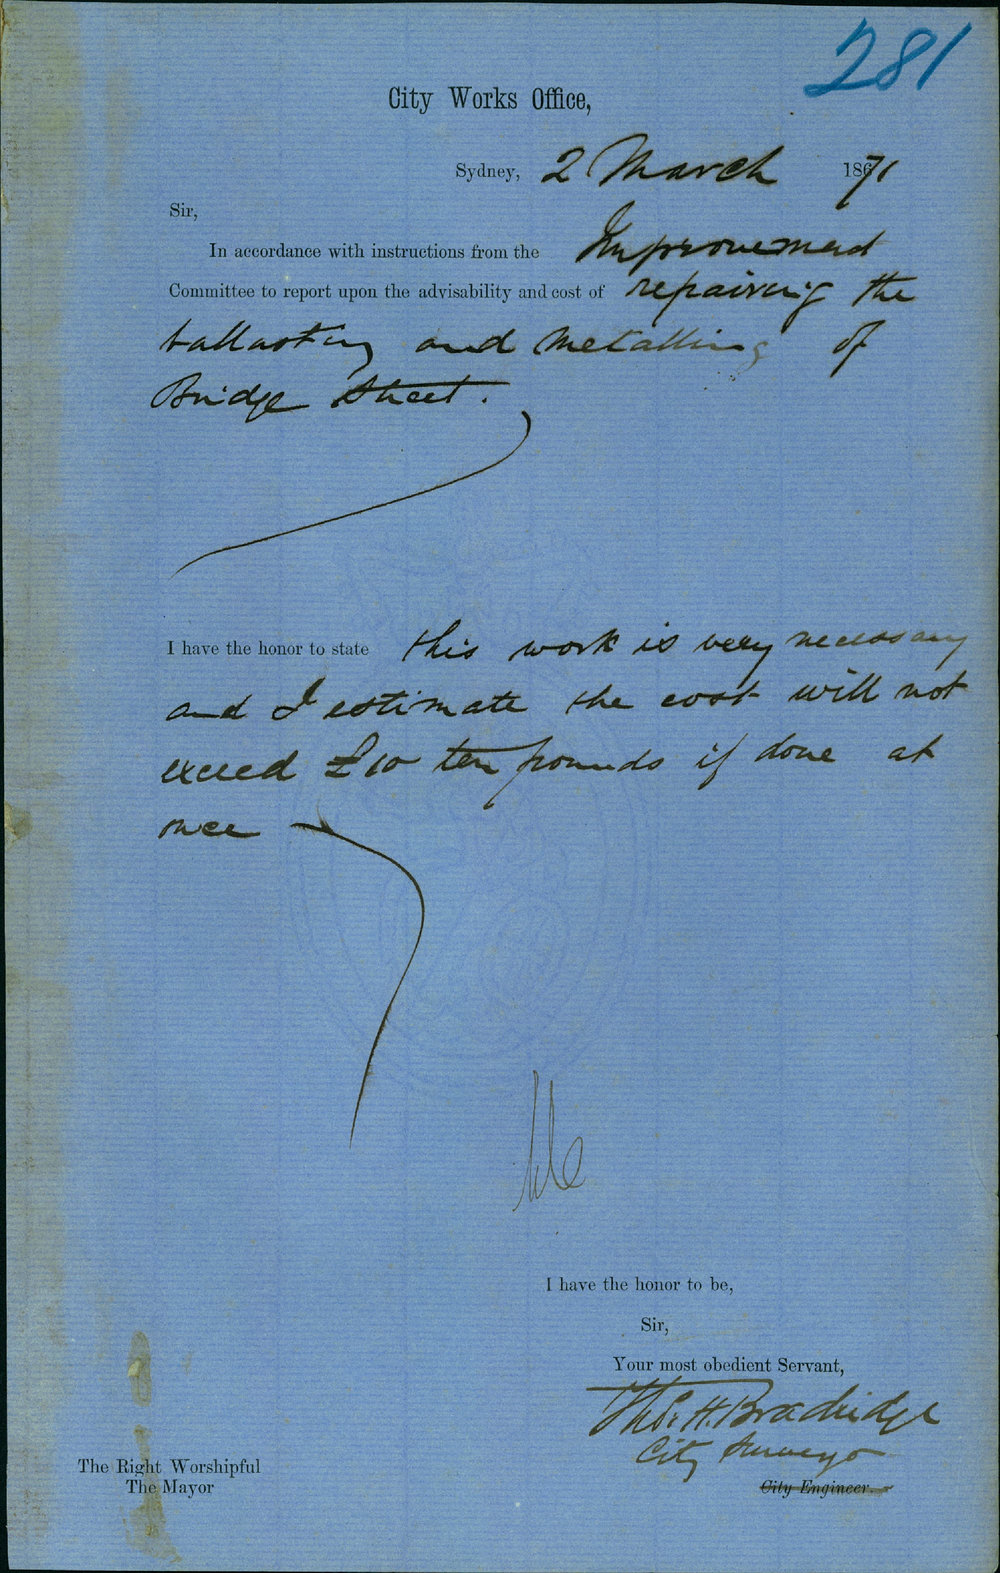 281
City Works Office,
Sydney, 2 March 1871
Sir,
In accordance with instructions from the Improvement
Committee to report upon the advisability and cost of repairing the
ballasting and metalling of
Bridge Street.
I have the honor to state this work is very necessary
and I estimate the cost will not
exceed £10 ten pounds if done at
once
I have the honor to be,
Sir,
Your most obedient Servant,
Thos. H. Bradridge
City Surveyor
The Right Worshipful
The Mayor
City Engineer.